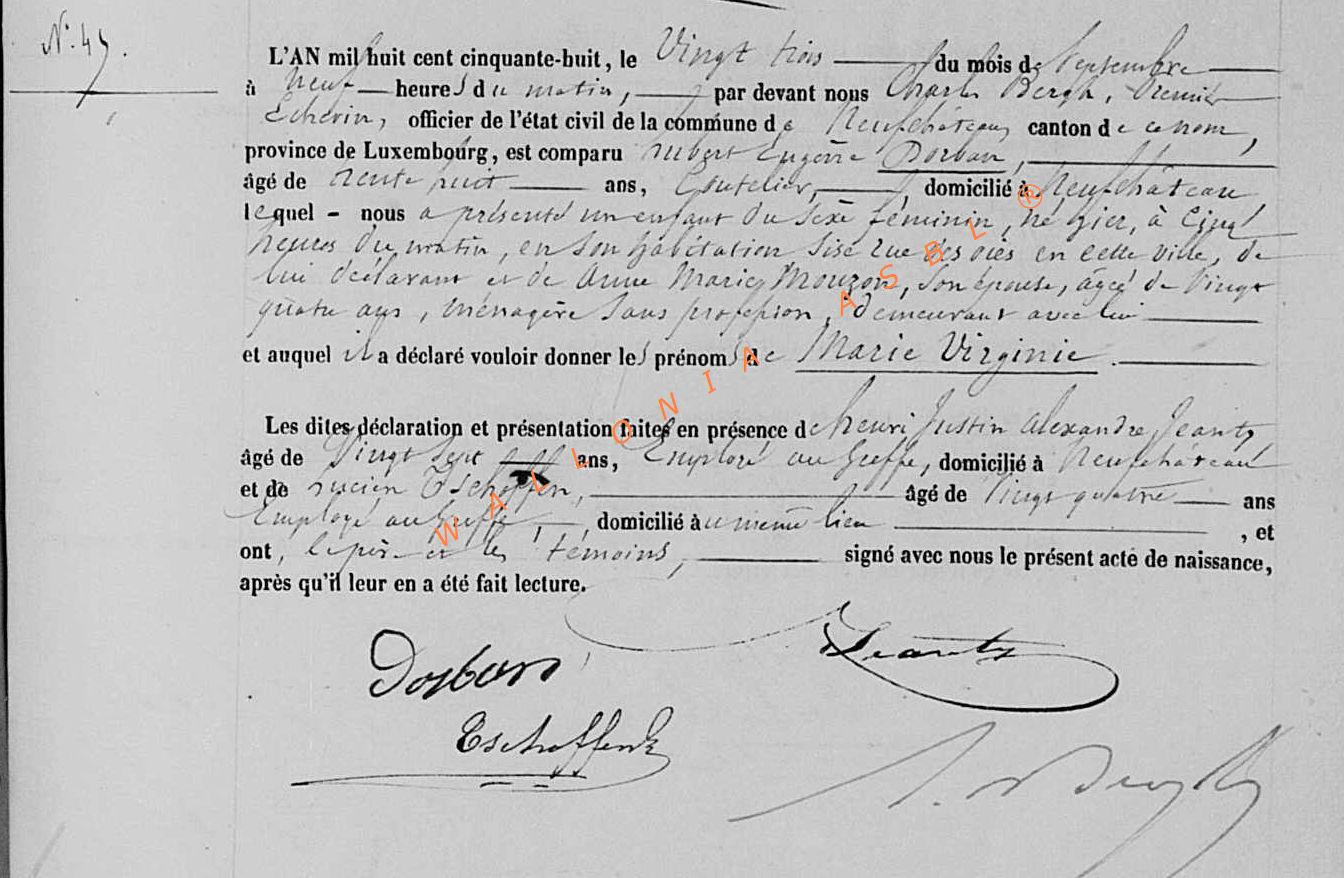 N° 47.
L'AN mil huit cent cinquante-huit, le Vingt trois du mois de Septembre
à neuf heures du matin, par devant nous Charles Bergh, Premier
Echevin, officier de l'état civil de la commune de Neufchâteau, canton de ce nom,
province de Luxembourg, est comparu hubert Eugène Dorban,
âgé de trente huit ans, Coutelier, domicilié à Neufchâteau
lequel - nous a présenté un enfant du sexe féminin, né hier, à Cinq
heures du matin, en son habitation sise rue des oies en cette ville, de
lui déclarant et de Anne Marie Mouzon, son épouse, âgée de Vingt
quatre ans, ménagère sans profession, demeurant avec lui
et auquel il a déclaré vouloir donner les prénoms de Marie Virginie.
Les dites déclaration et présentation faites en présence de henri Justin Alexandre Jeanty
âgé de Vingt sept ans, Employé au Greffe, domicilié à Neufchâteau
et de Lucien Tschoffen, âgé de Vingt quatre ans
Employé au Greffe, domicilié au même lieu , et
ont, le père et les témoins, signé avec nous le présent acte de naissance,
après qu'il leur en a été fait lecture.
Dorban
Jeanty
Tschoffen
WALLONIA ASBL ®